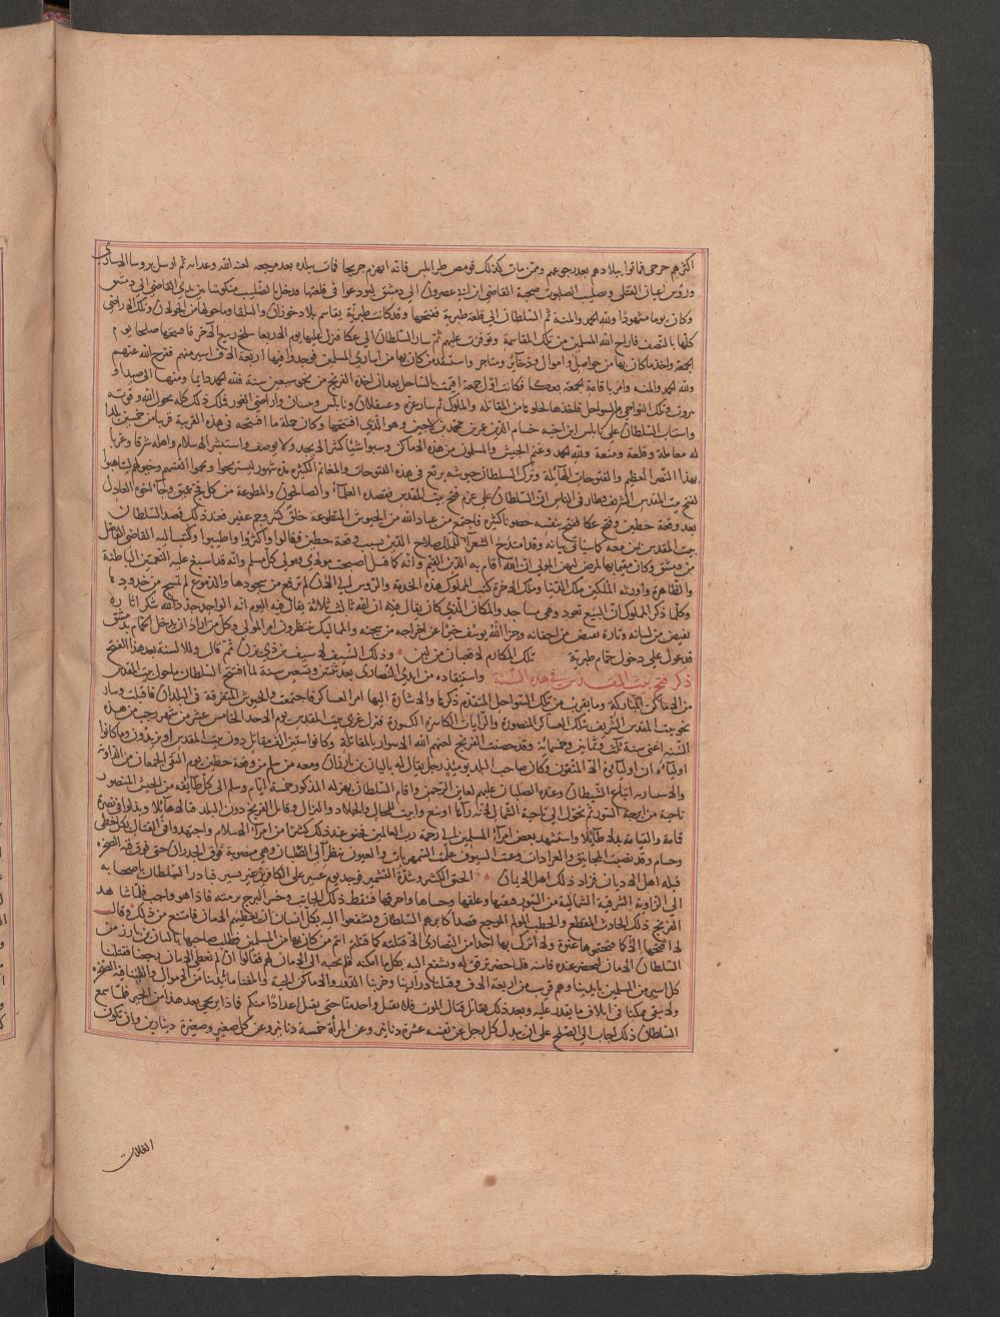 اكثرهم جرحى فماتوا ببلادهم بعد رجوعهم وممن مات كذلك قومص طرابلس فانه انهزم جريحا فمات ببلده بعد مرجعه لعنه الله ثم ارسل بروسا الاسارى
ورؤس اعيان القتلى وصليب الصلبوت صحبة القاضي ابن ابي عصرون الى دمشق ليودعوا في قلعتها ودخل بالصليب منكوسا بين يدي القاضي الى دمشق
وكان يوما مشهودا ولله الحمد والمنة ثم السلطان الى قلعة طبرية ففتحها وقد كانت طبرية تقاسم بلاد حوران والبلقا وما حولها من الجولان وتلك الاراضي
كلها بالنصف فاراح الله المسلمين من تلك المقاسمة وتوفرت عليهم ثم سار السلطان الى عكا فنزل عليها يوم الاربعا سلخ ربيع الآخر فافتتحها صلحا يوم
الجمعة واخذ ما كان بها من حواصل واموال وذخائر ومتاجر واستنقذ من كان بها من اسارى المسلمين فوجد فيها اربعة الاف اسير منهم ففرج الله عنهم
ولله الحمد والمنه وامر باقامة الجمعة بعكا فكانت اول جمعة اقيمت بالساحل بعد ان اخذه الفرنج من نحو سبعين سنة فلله الحمد دايما ومنها الى صيدا و
بيروت وتلك النواحي من السواحل فاخذها لخلوها من المقاتله والملوك ثم سار غزة وعسقلان ونابلس وبيسان واراضي الغور فملك ذلك كله بحول الله وقوته
واستناب السلطان على نابلس ابن اخيه حسام الدين عمر بن محمد بن لاجين وهو الذي افتتحها وكان جملة ما افتتحه في هذه القريبة قريبا من خمسين بلدا
له معاملة وقلعة ومنعة ولله الحمد وغنم الجيش والمسلمون من هذه الاماكن وسبوا شيئا كثيرا لا يحد ولا يوصف واستبشر الاسلام واهله شرقا وغربا
بهذا النصر العظيم والفتوحات الهائلة وترك السلطان جيوشه يرتع في هذه الفتوحات والمغانم الكثيرة مدة شهور ليستريحوا ويجموا انفسهم وخيولهم ليتاهبوا
لفتح بيت المقدس الشريف وطار في الناس ان السلطان على عزم فتح بيت المقدس فقصده العلماء والصالحون والمطوعة من كل فج عميق وجاء اخوه العادل
بعد وقعة حطين وفتح عكا ففتح بنفسه حصونا كثيرة فاجتمع من عباد الله من الجيوش المتطوعة خلق كثير وجم غفير فعند ذلك قصد السلطان
بيت المقدس بمن معه كما سياتي بيانه وقد امتدح الشعراء الملك صلاح الدين بسبب وقعة حطين فقالوا واكثروا واطيبوا وكتب اليه القاضي الفاضل
من دمشق وكان مقيما بها لمرض ليهن المولى ان الله اقام به الدين القيم وانه كما قيل اصبحت مولاي ومولى كل مسلم وانه قد اسبغ عليه النعمتين الباطنة
والظاهرة واورثه الملكين ملك الدنيا وملك الاخرة كتب المملوك هذه الخدمة والرؤس الى الان لم ترفع من سجودها والدموع لم تمسح من خدودها
وكلما ذكر المملوك ان البيع تعود وهي مساجد والمكان الذي كان يقال فيه ان الله ثالث ثلاثة يقال فيه اليوم انه الواحد جدد لله شكرا تارة
يفيض من لسانه وتارة يفيض من اجفانه وجزا الله يوسف خيرا عن اخراجه من سجنه والمماليك ينتظرون امر المولى وكل من اراد ان يدخل الحمام بدمشق
قد عول على دخول حمام طبرية تلك المكارم لا قعبان من لبن وذلك السيف لا سيف بن ذي يزن ثم قال وللالسنة بعد هذا الفتح
ذكر فتح بيت المقدس في هذه السنة واستنقاذه من ايدي النصارى بعد ثنتين وتسعين سنة لما افتتح السلطان ما حول بيت المقدس
من الاماكن المباركة وما يقرب من تلك السواحل المتقدم ذكرها والاشارة اليها امر العساكر فاجتمعت والجيوش المتفرقة في البلدان فاقبلت وسار
نحو بيت المقدس الشريف بتلك العساكر المنصورة والرايات الكاسرة فنزل غربي بيت المقدس يوم الاحد الخامس عشر من شهر رجب من هذه
السنة اعني سنة ثلاث وثمانين وخمسمائة وقد حصنت الفرنج لعنهم الله الاسوار بالمقاتلة وكانوا ستين الف مقاتل دون بيت المقدس او يزيدون وما كانوا
اولياءه ان اولياؤه الا المتقون وكان صاحب البلد يومئذ رجل يقال له باليان بن بارزان ومعه من سلم من وقعة حطين يوم التقى الجمعان من الداوية
والاستبارية اتباع الشيطان وعبدة الصلبان عليهم لعاين الرحمن واقام السلطان بمنزله المذكور خمسة ايام وسلم الى كل طائفة من الجيش المنصور
ناحية من ابرجة السور ثم تحول الى ناحية الشمال لانه رآها اوسع وانسب للمجال والجلاد والنزال وقاتل الفرنج دون البلد قتالا هائلا وبذلوا في نصرة
قمامة والقيامة بذلا طائلا واستشهد بعض امراء المسلمين الى رحمة رب العالمين فحنق عند ذلك كثير من امراء الاسلام واجتهدوا في القتال بكل خطي
وحسام وقد نصبت المجانيق والعرادات وغنت السيوف عملت السمهريات والعيون تنظر الى الصلبان وهي منصوبة فوق الجدران حتى فوق قبة الصخرة
قبلة اهل الاديان فزاد ذلك اهل الايمان الحنق الكثير وشدة التشمير فوجد يوم عسير على الكافرين غير يسير فبادر السلطان باصحابه
الى الزاوية الشرقية الشمالية من السور فنقبها وعلقها وحشاها واحرقها فسقط ذلك الجانب وخر البرج برمته فاذا هو واجب فلما شاهد
الفرنج ذلك الحادث الفظيع والخطب المولم الموجع قصدا اكابرهم السلطان وتشفعوا اليه بكل انسان ان يعطيهم الامان فامتنع من ذلك وقال
لا افتحها الا كما فتحتموها عنوة ولا اترك بها احدا من النصارى الا قتلته كما قتلتم انتم من كان بها من المسلمين فطلب صاحبها باليان بن بارزان من
السلطان الامان ليحضر عنده فامنه فلما حضر ترقق له وتشفع اليه بكل ما امكنه فلم يجبه الى الامان لهم فقالوا ان لم تعطنا الامان رجعنا فقتلنا
كل اسير من المسلمين بايدينا وهم قريب من اربعة الاف وقتلنا ذرارينا وخربنا الدور والاماكن الحسنة واتلفنا ما بايدينا من الاموال والقينا قبة الصخرة
ولا نبقي ممكنا في اتلاف ما نقدر عليه وبعد ذلك نقاتل قتال الموت فلا يقتل واحد منا حتى يقتل اعدادا منكم فماذا يرتجى بعد هذا من الخير فلما سمع
السلطان ذلك اجاب الى الصلح على ان يبذل كل رجل عن نفسه عشرة دنانير وعن المرأة خمسة دنانير وعن كل صغير وصغيرة دينارين وان تكون
الغلات